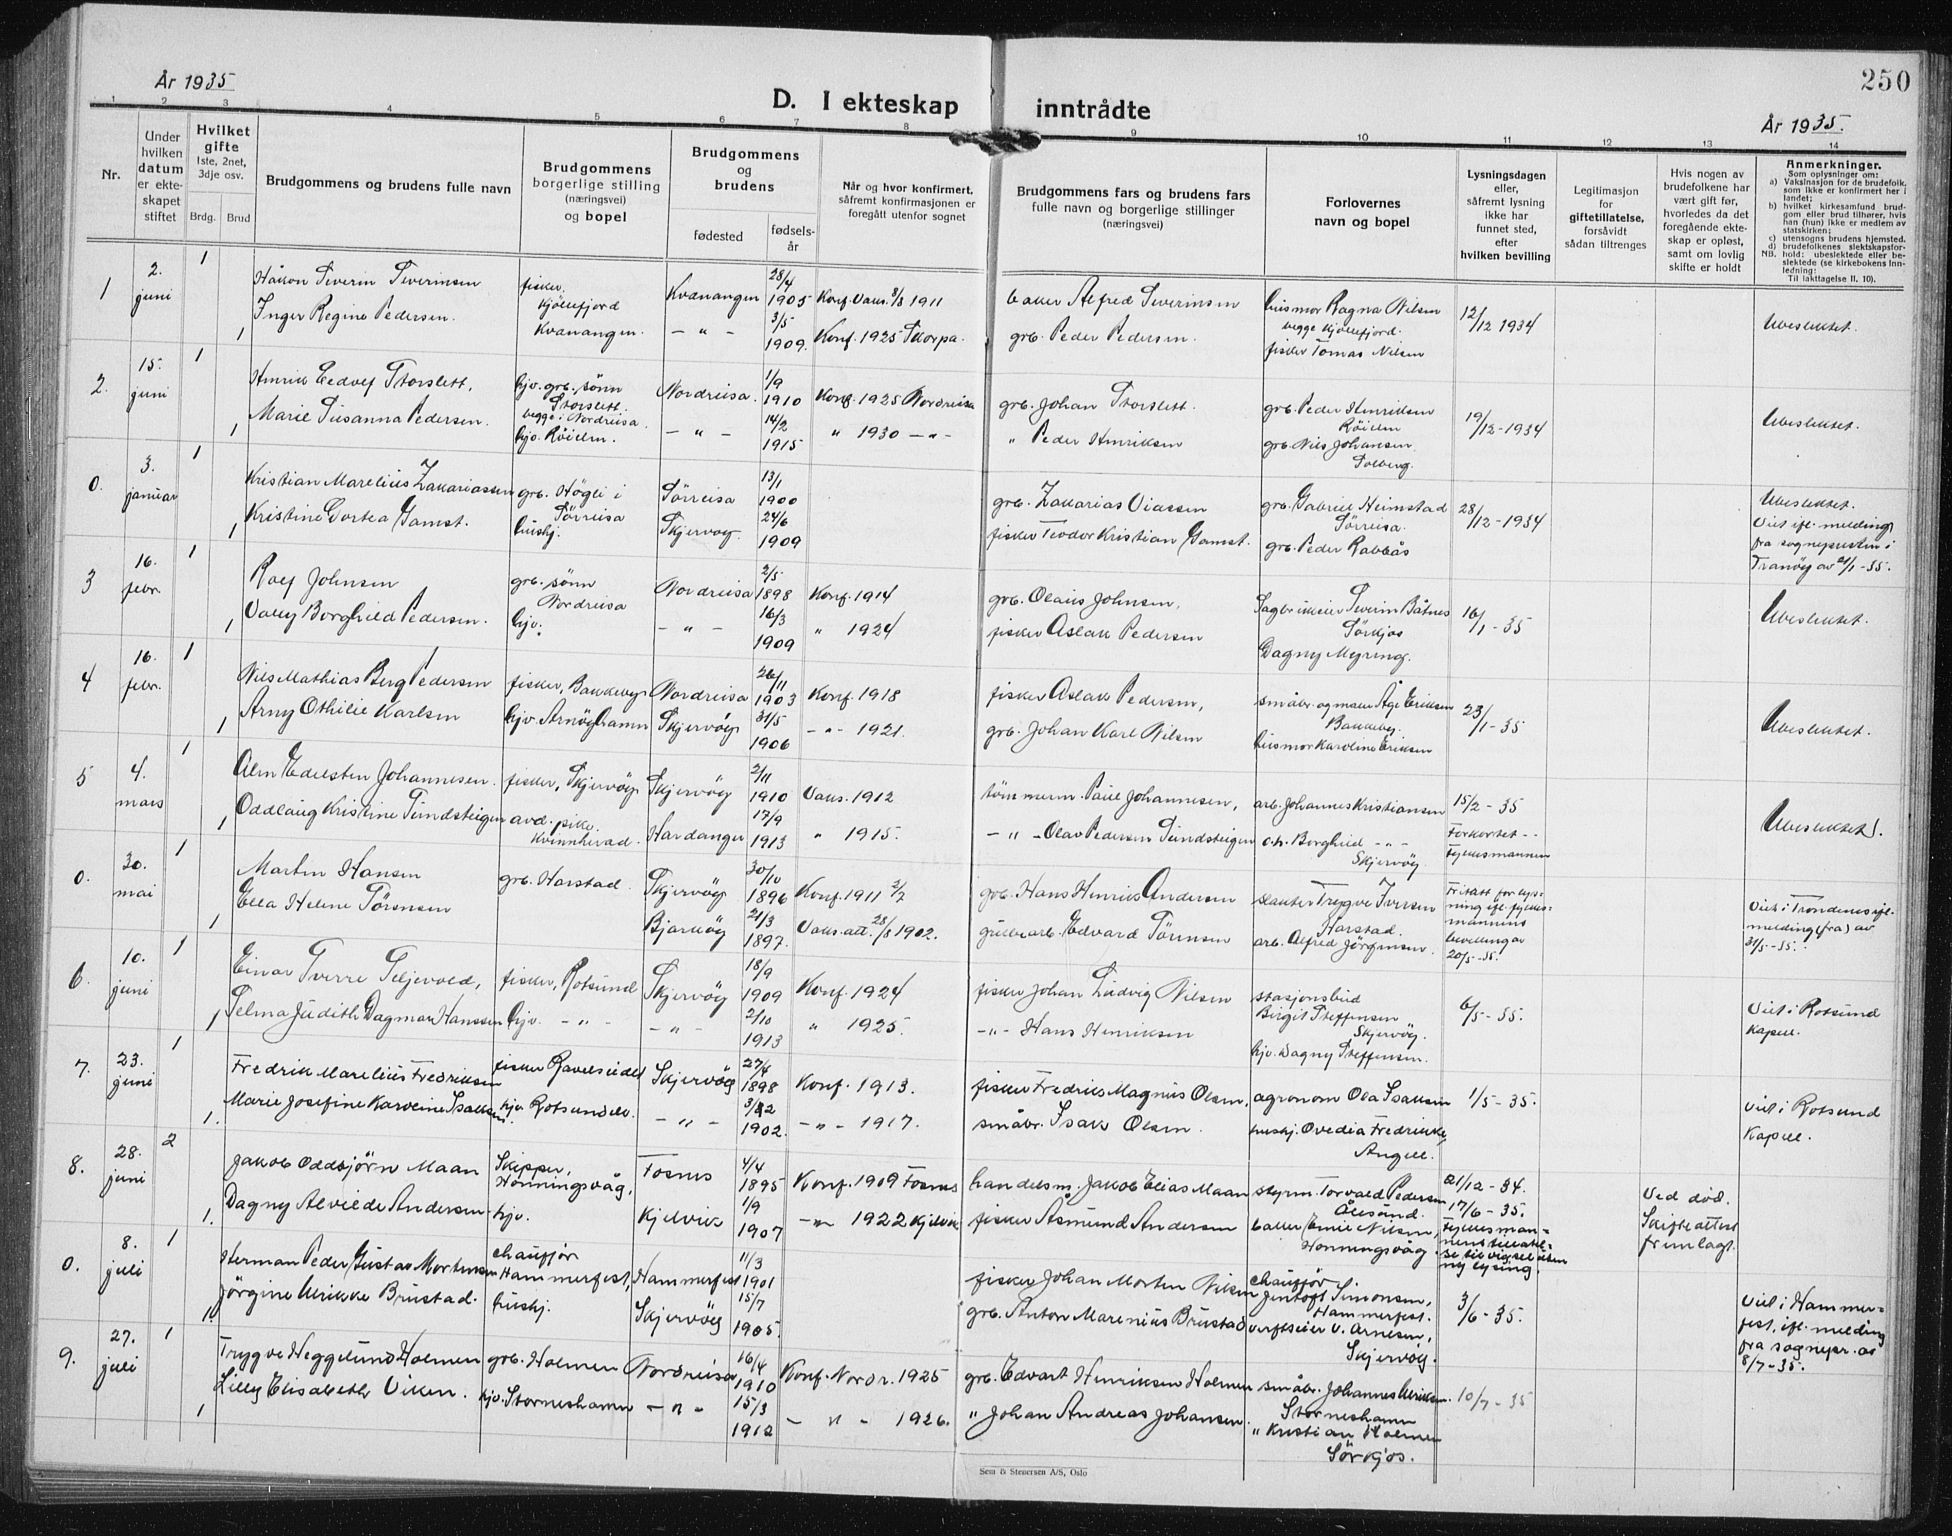 250
År 1935
D. I ekteskap inntrådte
År 1935.
1 2 3 4 5 6 7 8 9 10 11 12 13 14
Nr.
Under hvilken datum er ekteskapet stiftet
Hvilket gifte 1ste, 2net, 3dje osv.
Brdg. Brud
Brudgommens og brudens fulle navn
Brudgommens borgerlige stilling (næringsvei) og bopel
Brudgommens og brudens
fødested
fødselsår
Når og hvor konfirmert, såfremt konfirmasjonen er foregått utenfor sognet
Brudgommens fars og brudens fars fulle navn og borgerlige stillinger (næringsvei)
Forlovernes navn og bopel
Lysningsdagen eller, såfremt lysning ikke har funnet sted, efter hvilken bevilling
Legitimasjon for giftetillatelse, forsåvidt sådan tiltrenges
Hvis nogen av brudefolkene har vært gift før, hvorledes da det foregående ekteskap er opløst, samt om lovlig skifte er holdt
Anmerkninger.
Som oplysninger om:
a) Vaksinasjon for de brudefolk, som ikke er konfirmert her i landet;
b) hvilket kirkesamfund brudgom eller brud tilhører, hvis han (hun) ikke er medlem av statskirken;
c) utensogns brudens hjemsted.
d) brudefolkenes slektskapsforhold: ubeslektede eller beslektede (se kirkebokens Innledning:
NB. Til iakttagelse II. 10).
1 2. juni 1 Håkon Severin Severinsen fisker, Kjöllefjord Kvænangen 28/4 1905 Konf. Vaks. 8/8 1911 Alfred Severinsen husmor Ragna Nilsen begge Kjöllefjord. 12/12 1934 Ubeslektet.
1 Inger Regine Pedersen. Kvænangen. - " - 3/5 1909. Konf. 1925 Skorpa. grb. Peder Pedersen. fisker Tomas Nilsen
2. 15. juni 1 Henrik Storslett, hjv. grb. sønn Storslett. begge i Nordreisa. Nordreisa. 1/9 1910 Konf. 1925 Nordreisa grb. Johan Storslett. grb. Peder Henriksen Röielen 19/12-1934 Ubeslektet.
1 Marie Susanna Pedersen. hjv. Röielen. - " - 14/2 1915 " 1930 - " - " Peder Henriksen grb. Nils Johansen Solberg.
0. 3. januar 1 Kristian Marelius Zakariassen grb. Högli i Sörreisa Sörreisa 13/1 1900 grb. Zakarias grb. Gabriel Heimstad Sörreisa. 28/12-1934 Ubeslektet. Viet ifl. melding fra sognepresten i Tranöy av 21/1-35.
1 Kristine Dortea Gamst. hushj. Skjervøy. 24/6 1909 fisker Teodor Kristian Gamst. grb. Peder Rabbås
3 16. febr. 1 Rolf Johnsen grb. sønn Nordreisa Nordreisa 2/5 1898 Konf. 1914 grb. Olaus Johnsen, Severin Båtnes Sörkjos 16/1-35 Ubeslektet.
1 Vally Borghild Pedersen. hjv. - " - 16/3 1909 " 1924 fisker Aslak Pedersen Dagny Myreng.
4 16. febr. 1 Nils Mathias Berg Pedersen fisker, Bakkeby Nordreisa 26/11 1903 Konf. 1918 fisker Aslak Pedersen, småbr. og maler Åge Eriksen Bakkeby. 23/1-35 Ubeslektet.
1 Arny Othilie Karlsen hjv. Arnöyhamn Skjervöy 31/5 1906 - " - 1921. grb. Johan Karl Nilsen husmor Karoline Eriksen
5 4. mars 1 Alm Edelsten Johannesen. fisker, Skjervöy Skjervöy 2/11 1910 Vaks. 1912 tömmerm. Paul Johannesen, arb. Johannes Kristiansen 15/2-35 Forkortet - - Fylkesmannen Ubeslektet.
1 Oddlaug Kristine Sundsteigen avd. pike. Kvinnherad. Hardanger 17/9 1913 " 1915. - " - Olav Pedersen Sundsteigen o.h. Borghild - " - Skjervøy.
0. 30. mai 1 Martin Hansen grb. Harstad. Skjervöy 30/10 1896 Konf. 1911 2/7 grb. Hans Henrik Andersen Trygve Iversen Harstad. Fritatt for lysning ifl. fylkesmannens bevilling av 20/5-35. Viet i Trondenes ifl. melding (fra) av 31/5-35.
1 Ella Helene Sörensen Bjarköy 21/3 1897. Vaks. att. 28/8 1902. Edvard Sörensen arb. Alfred Jörgensen.
6 10. juni 1 Einar Sverre Seljevold, fisker, Rotsund Skjervöy 18/9 1909 Konf. 1924 fisker Johan Ludvig Nilsen Birgit Steffensen Skjervöy. 6/5-35. Viet i Rotsund kapell.
1 Selma Judith Dagmar Hanssen hjv. - " - - " - 2/10 1913 " 1925. - " - Hans Henriksen hjv. Dagny Steffensen.
7. 23. juni 1 Fredrik Marelius Fredriksen fisker Skjervöy 27/4 1898 Konf. 1913. fisker Fredrik Magnus Olsen, agronom Ola Isaksen 1/5-35. Viet i Rotsund Kapell.
1. Marie Josefine Karoline Isaksen. hjv. Rotsundelv. - " - 1902. - " - 1917. småbr. Isak Olsen. hushj. Ovedia Fredrikke Angell.
8. 28. juni 2 Jakob Oddbjörn Maan Skipper, Honningsvåg, Fosnes 4/4 1895 Konf. 1909 Fosnes handelsm. Jakob Elias Maan styrm. Torvald Pedersen Ålesund. 21/12-34. 17/6-35. Ved död. Skifteattest fremlagt.
1. Dagny Alvilde Andersen hjv. Kjelvik 1/9 1907 - " - 1922 Kjelvik fisker Åsmund Andersen Emil Nilsen, Honningsvåg. ny lysing.
0. 8. juli 1 Herman Peder Gustav Mortensen chauffør Hammerfest, Hammerfest 11/3 1901 fisker Johan Morten Nilsen chauffør Jentoft Simonsen, Hammerfest. 3/6-35. Viet i Hammerfest, ifl. melding fra sognepr. av 8/7-35.
1. Jörgine Ulrikke Brustad. hushj. Skjervöy 15/7 1905. grb. Anton Marenius Brustad verftseier V. Arnesen, Skjervöy.
9. 27. juli 1 Trygve Heggelund Holmen grb. Holmen Nordreisa 16/4 1910 Konf. Nordr. 1925 grb. Edvart Henriksen Holmen småbr. Johannes Storneshamn 10/7-35
1 Lilly Elisabeth Viken. hjv. Storneshamn - " - 15/3 1912 - " - 1926. " Johan Andreas Johansen. " Kristian Holmen Sörkjos.
Sem & Stenersen A/S, Oslo